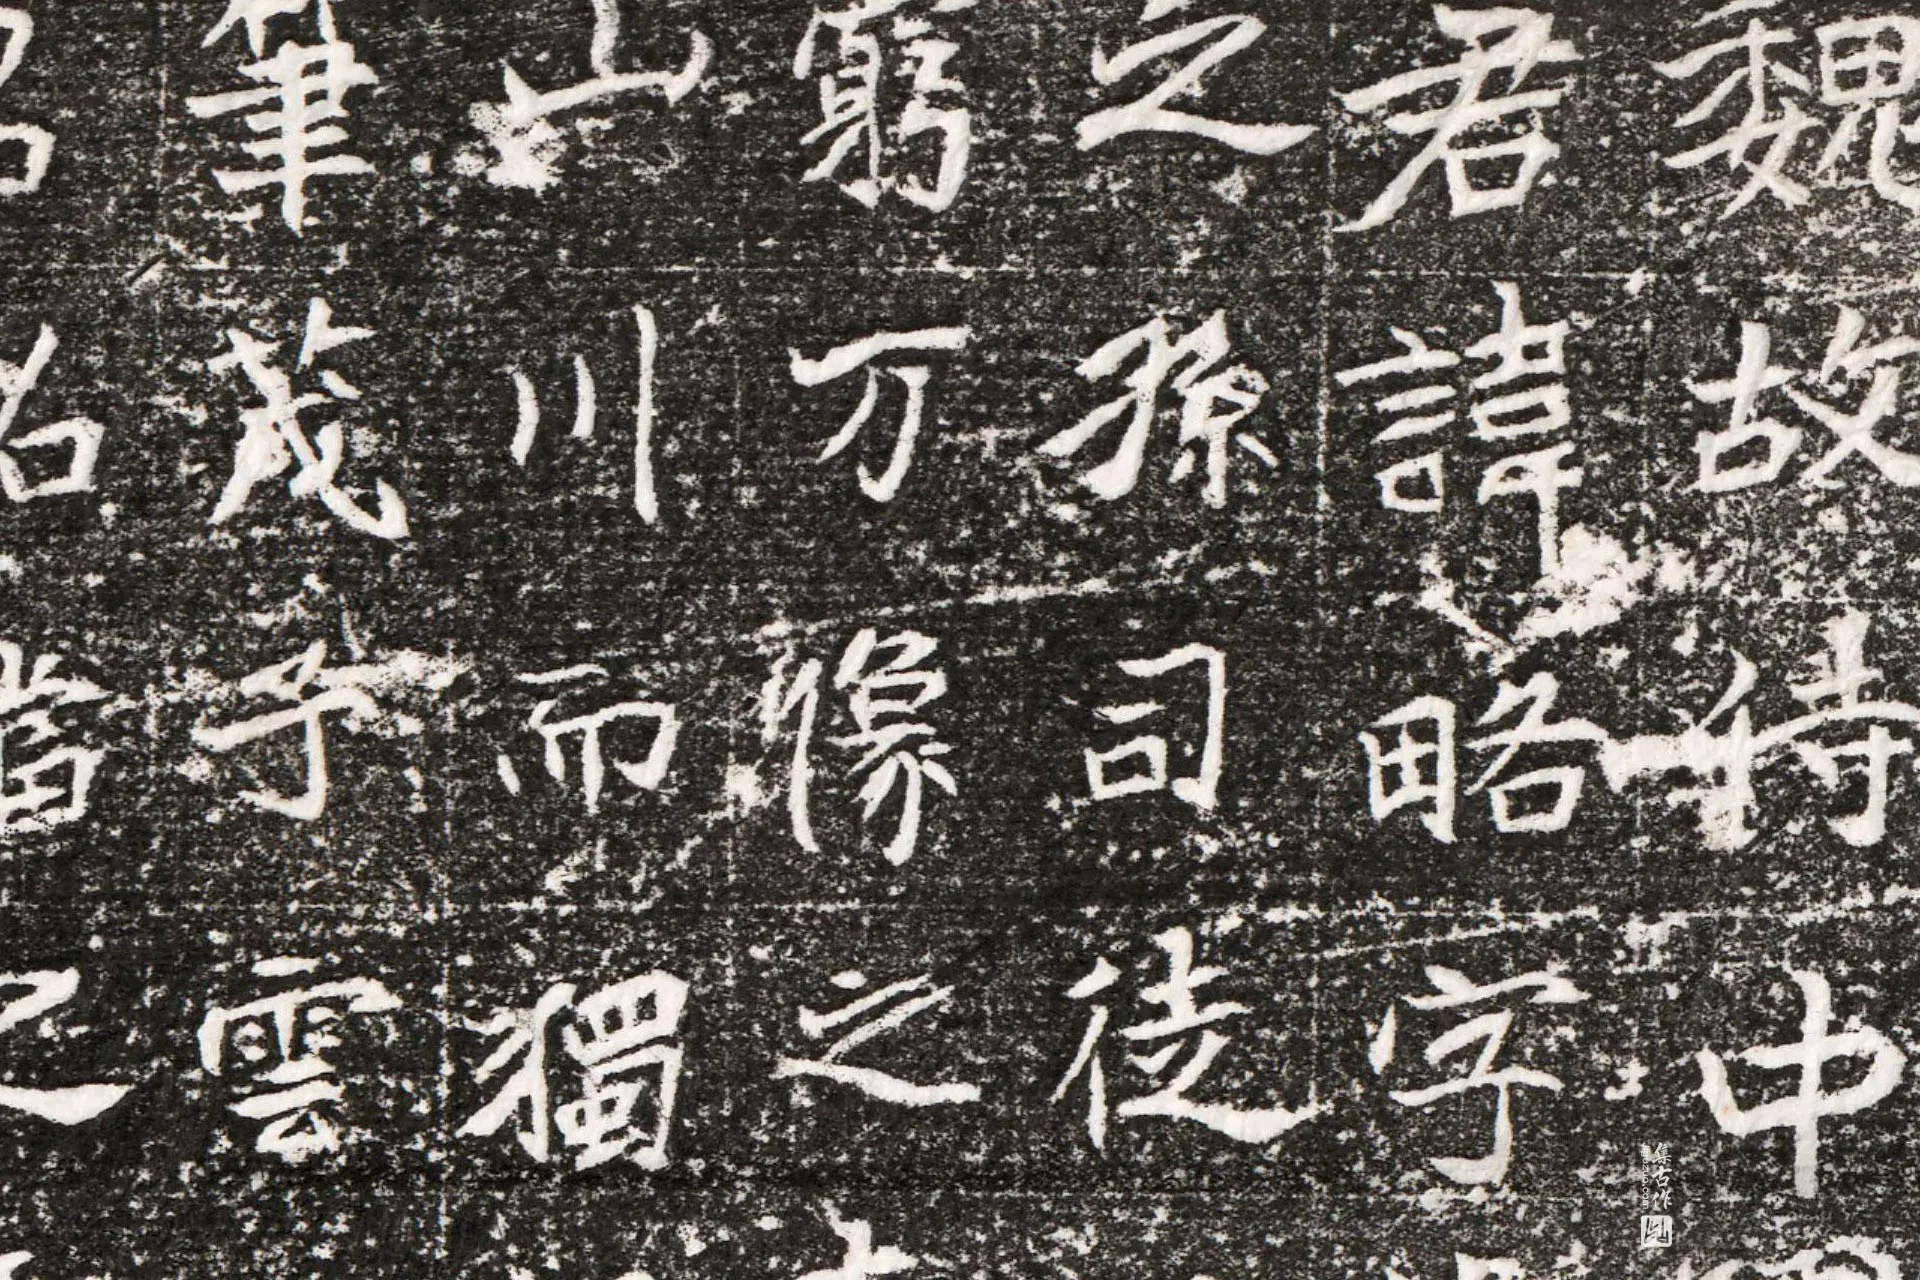 魏故特中
君諱略字
之孫司徒
窮万像之
山川而獨
筆茂于雲
當
集古作